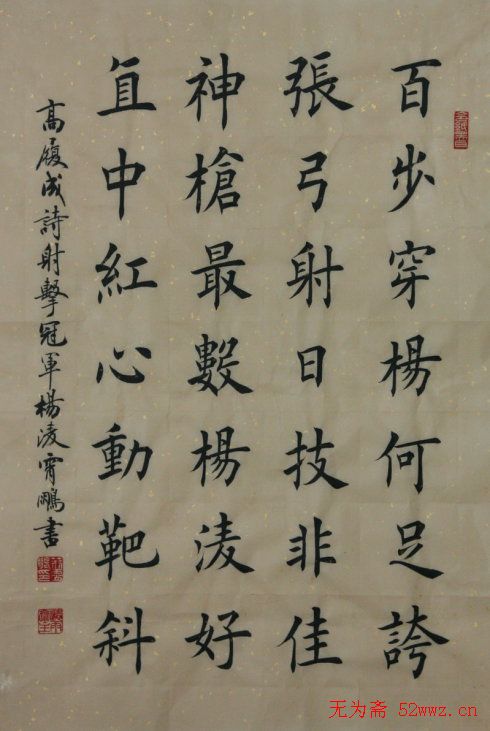 百步穿楊何足誇
張弓射日技非佳
神槍最數楊淩好
直中紅心動靶斜
高履成詩射擊冠軍楊淩霄鵬書
无为斋 52wwz.cn